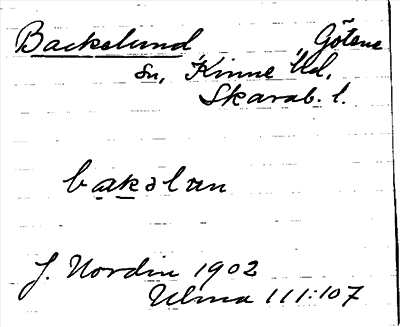 Backelund Götene
sn, Kinne hd,
Skarab. l.
bakəlun
J. Nordin 1902
Ulma 111:107